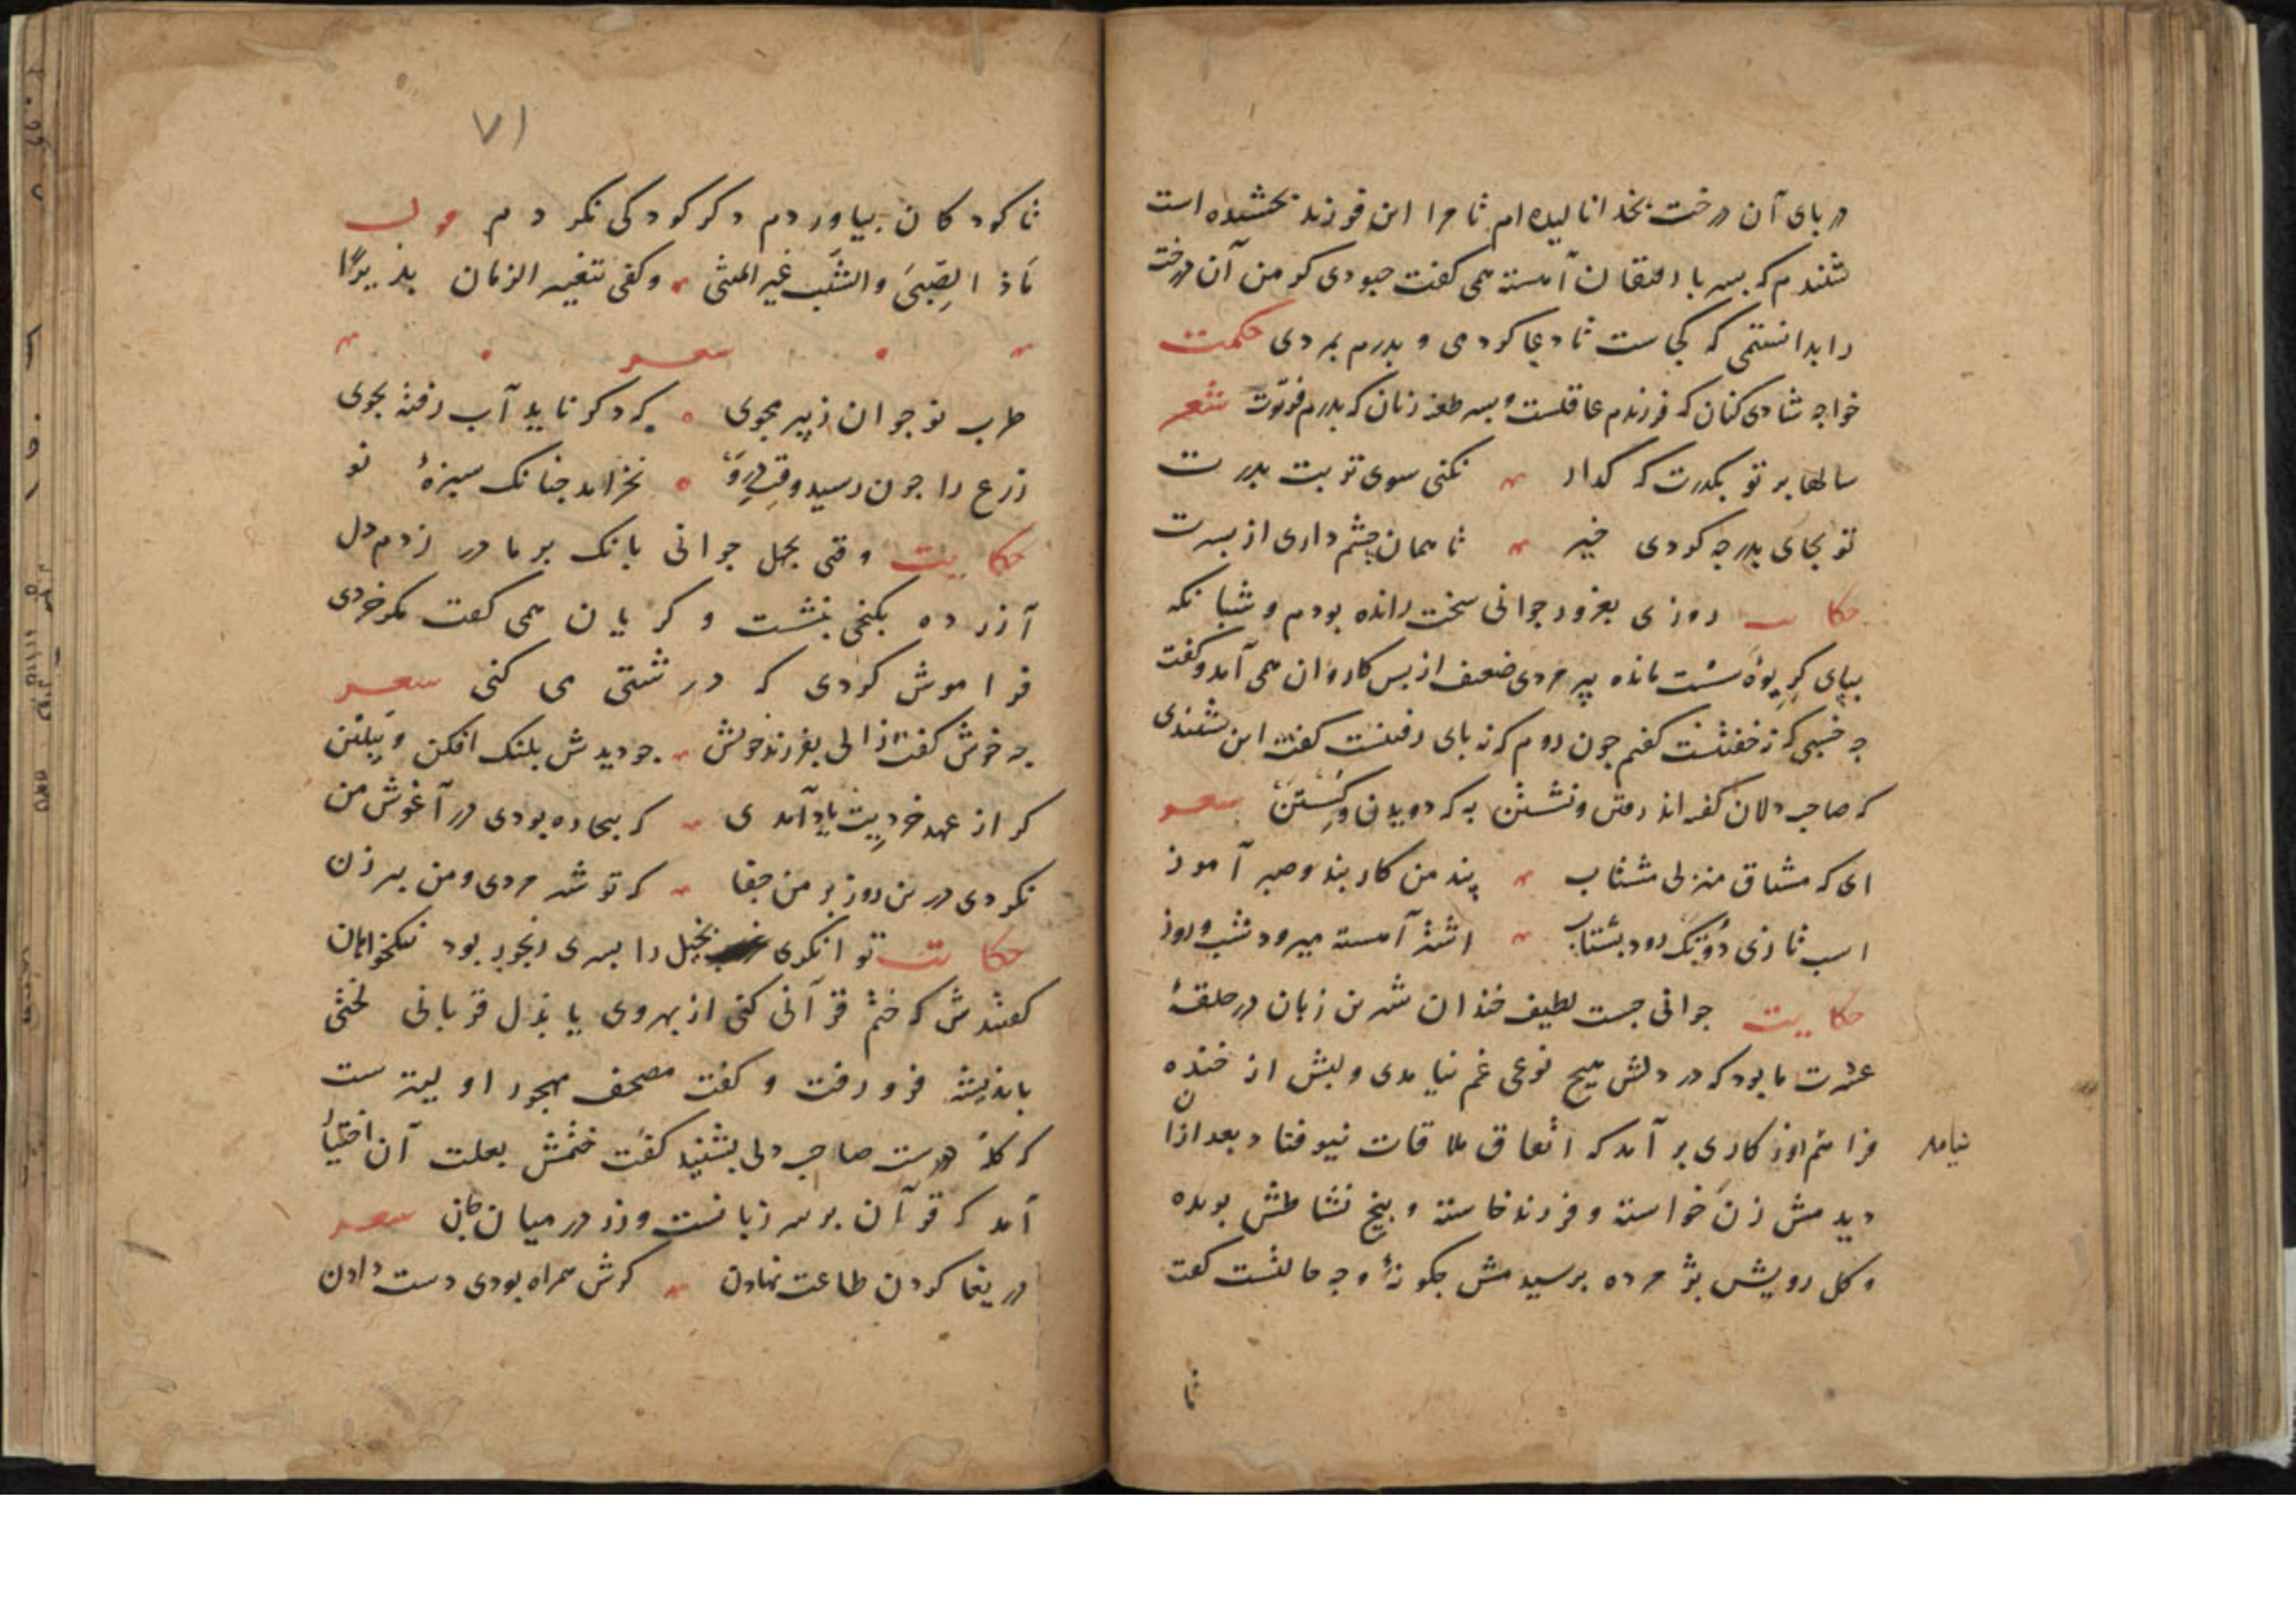 در بای آن درخت بخدا نالیده ام تا مرا این فرزند بخشیده است
شنیدم که بسر با رفیقان آهسته همی کفت جبودی کر من آن درخت
را بدانستمی که کجاست تا دعا کردمی و بدرم بمردی حکمت
خواجه شادی کنان که فرزندم عاقلست و بسر طعنه زنان که بدرم فرتوت شعر
سالها بر تو بکذرت که گذار نکنی سوی تربت بدرت
تو بجای بدر جه کردی خیر تا همان چشم داری از بسرت
حکایت روزی بغرور جوانی سخت رانده بودم و شبانکه
بپای کریوهٔ سست مانده پیر مردی ضعیف از بس کاروان همی آمد و کفت
جه خسبی که نه خفتنست کفتم جون روم که نه بای رفتنست کفت این نشنیدی
که صاحب دلان کفته اند رفتن و نشستن به که دویدن و کسستن شعر
ای که مشتاق منزلی مشتاب پند من کار بند و صبر آموز
اسب تازی دو تک رود بشتاب اشتر آهسته میرود شب و روز
حکایت جوانی جست لطیف خندان شیرین زبان در حلقهٔ
عشرت ما بود که در دلش هیچ نوعی غم نیامدی و لبش از خنده
نیامد
فراهم روزکاری بر آمد که اتفاق ملاقات نیوفتاد بعد ازان
دیدمش زن خواسته و فرزند خاسته و بیخ نشاطش بریده
و کل رویش بژمرده برسیدمش جکونهٔ و جه حالتست کفت
تا
۷۱
تا کودکان بیاوردم دکر کودکی نکردم
ماذا الصبی والشیب غیر لمتی وکفی بتغییر الزمان نذیرا
شعر
طرب نوجوان ز پیر مجوی که دکر ناید آب رفته بجوی
زرع را جون رسید وقت درو نخرامد جنانک سبزهٔ نو
حکایت وقتی بجهل جوانی بانک بر مادر زدم دل
آزرده بکنجی بنشست و کریان همی کفت مکر خردی
فراموش کردی که درشتی می کنی شعر
جه خوش کفت زالی بفرزند خویش جو دیدش بلنک افکن و پیلتن
کر از عهد خردیت یاد آمدی که بیچاره بودی در آغوش من
نکردی درین روز بر من جفا که تو شیر مردی و من پیر زن
حکایت توانکری بخیل را بسری رنجور بود نیکخواهان
کفتندش که ختم قرآنی کنی از بهر وی یا بذل قربانی لختی
باندیشه فرو رفت و کفت مصحف مهجور اولیتر ست
که کلهٔ دورست صاحب دلی بشنید کفت ختمش بعلت آن اختیار
آمد که قرآن بر سر زبانست و زر در میان جان شعر
دریغا کردن طاعت نهادن کرش همراه بودی دست دادن